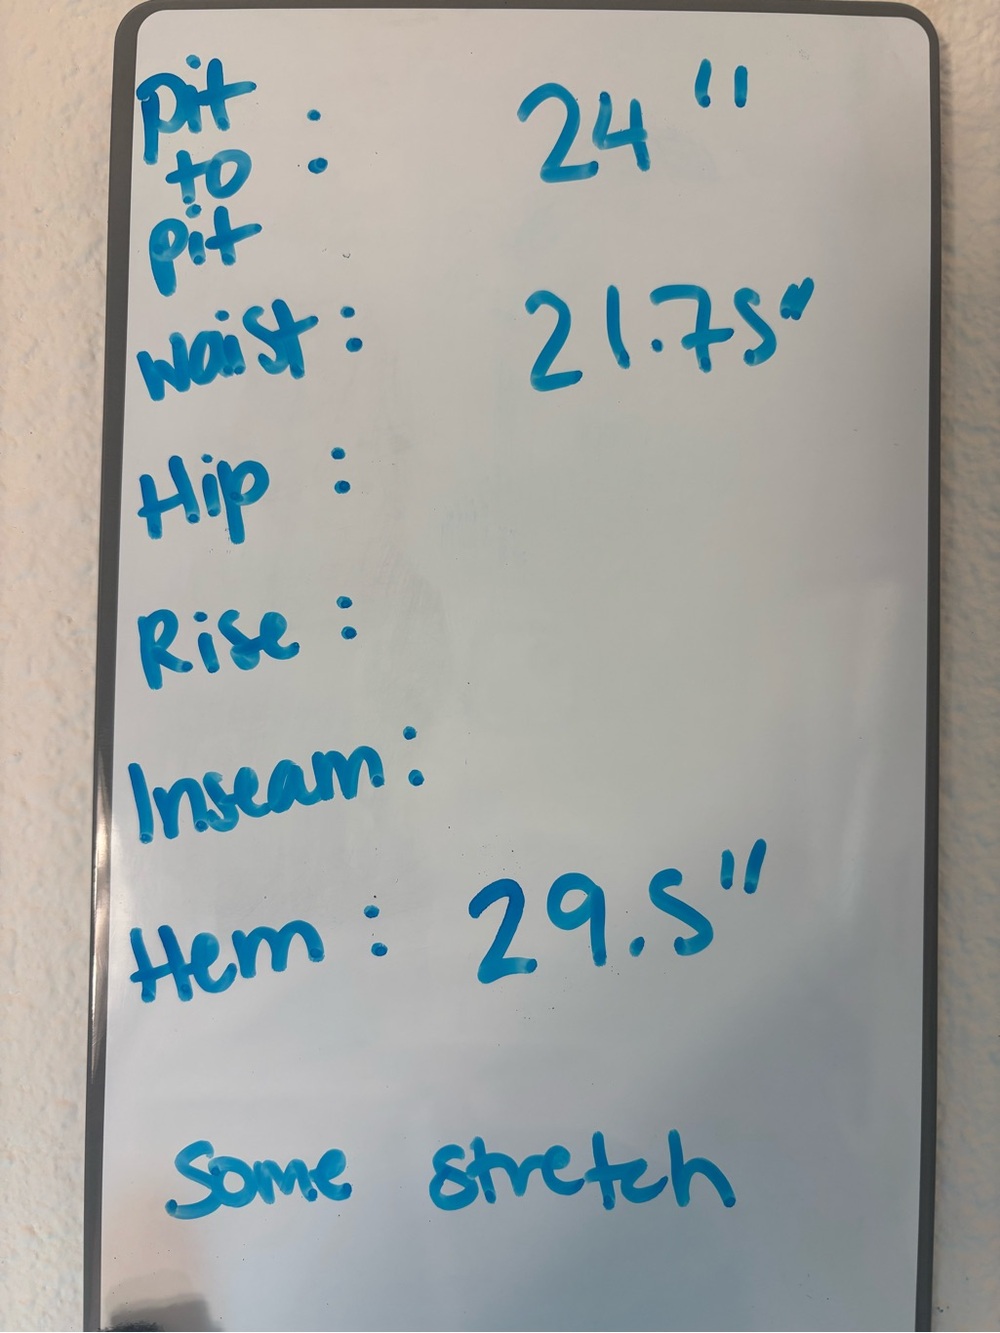 pit
to : 24"
pit
Waist: 21.75"
Hip :
Rise :
Inseam:
Hem: 29.5"
Some stretch